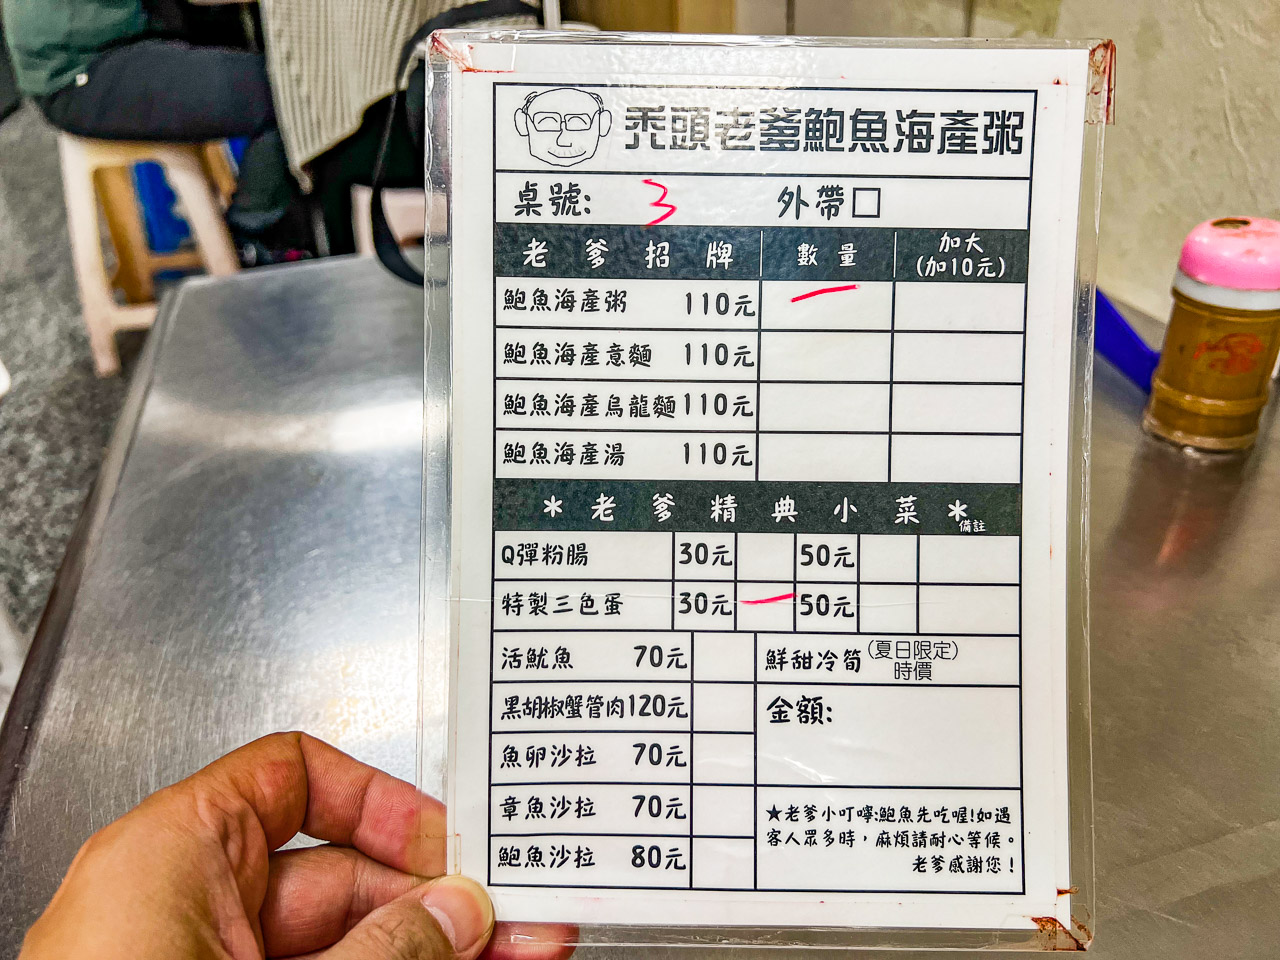 禿頭老爹鮑魚海產粥
桌號: 3 外帶□
老爹招牌 數量 加大(加10元)
鮑魚海產粥 110元 一
鮑魚海產意麵 110元
鮑魚海產烏龍麵 110元
鮑魚海產湯 110元
*老爹精典小菜* 備註
Q彈粉腸 30元 50元
特製三色蛋 30元 一 50元
活魷魚 70元
黑胡椒蟹管肉 120元
魚卵沙拉 70元
章魚沙拉 70元
鮑魚沙拉 80元
鮮甜冷筍 (夏日限定) 時價
金額:
★老爹小叮嚀:鮑魚先吃喔!如遇
客人眾多時，麻煩請耐心等候。
老爹感謝您！